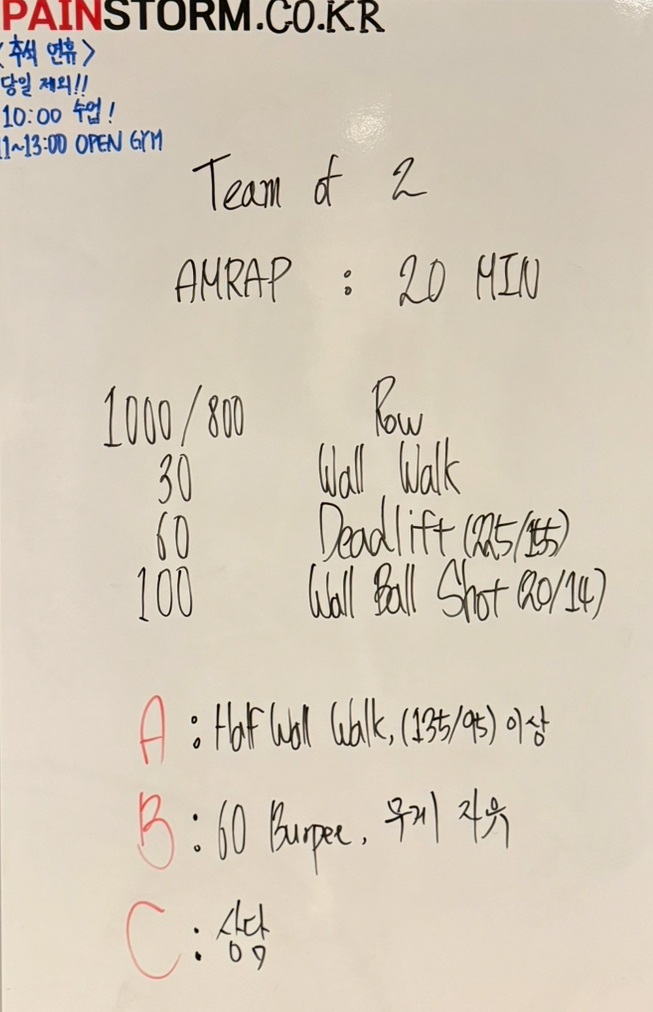 PAINSTORM.CO.KR
<추석 연휴>
당일 제외!!
10:00 수업!
11~13:00 OPEN GYM
Team of 2
AMRAP : 20 MIN
1000/800 Row
30 Wall Walk
60 Deadlift (225/155)
100 Wall Ball Shot (20/14)
A : Half Wall Walk, (135/95) 이상
B : 60 Burpee, 무게 자유
C : 상담